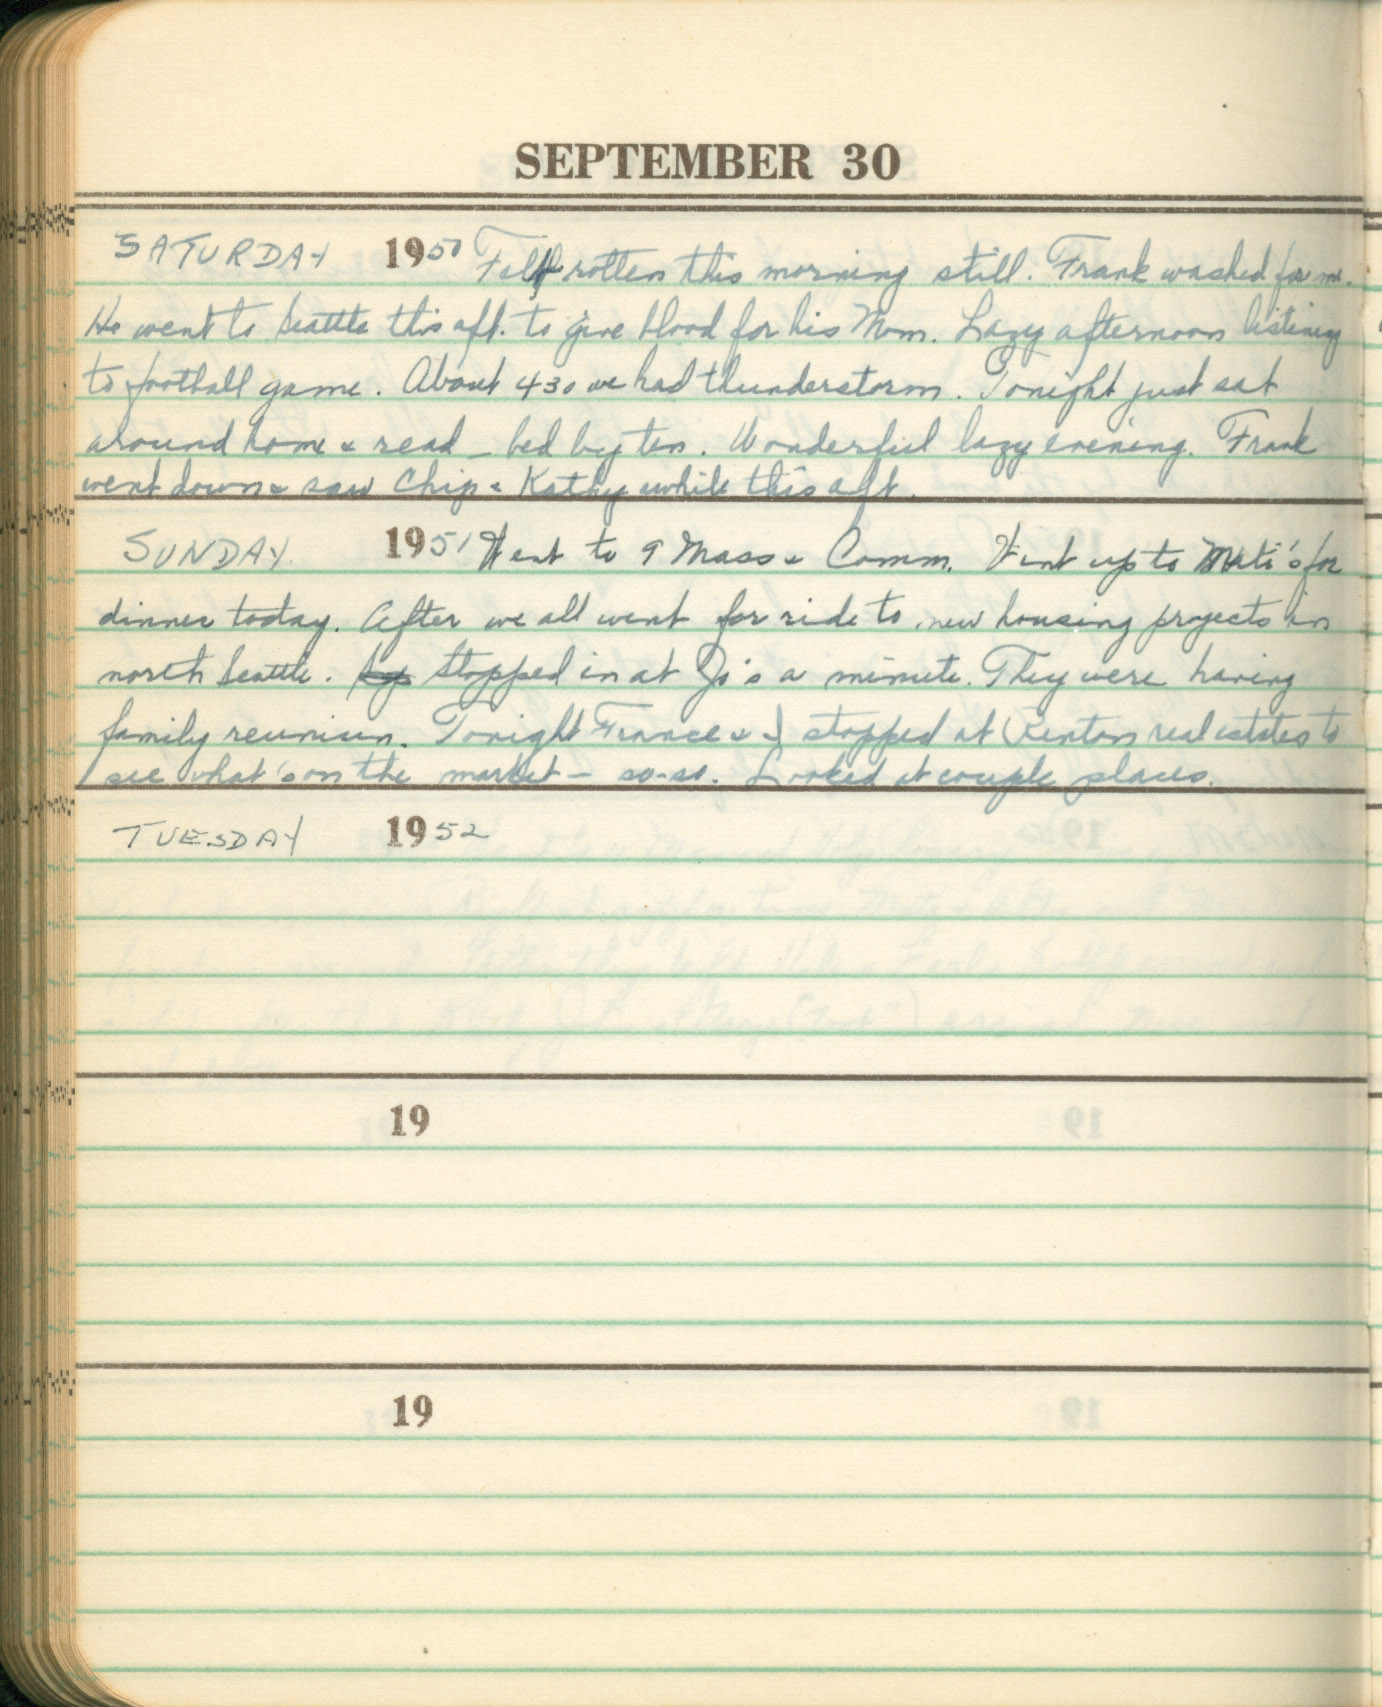 SEPTEMBER 30
SATURDAY 1950 Felt rotten this morning still. Frank washed for me.
He went to Seattle this aft. to give blood for his Mom. Lazy afternoon listening
to football game. About 430 we had thunderstorm. Tonight just sat
around home & read – bed by ten. Wonderful lazy evening. Frank
went down & saw Chip & Kathy while this aft.
SUNDAY 1951 Went to 9 Mass & Comm. Went up to Mati's for
dinner today. After we all went for ride to new housing projects in
north Seattle. Stopped in at Jo's a minute. They were having
family reunion. Tonight & I stopped at Renton real estates to
see what's on the market – so-so. Looked at couple places.
TUESDAY 1952
19
19